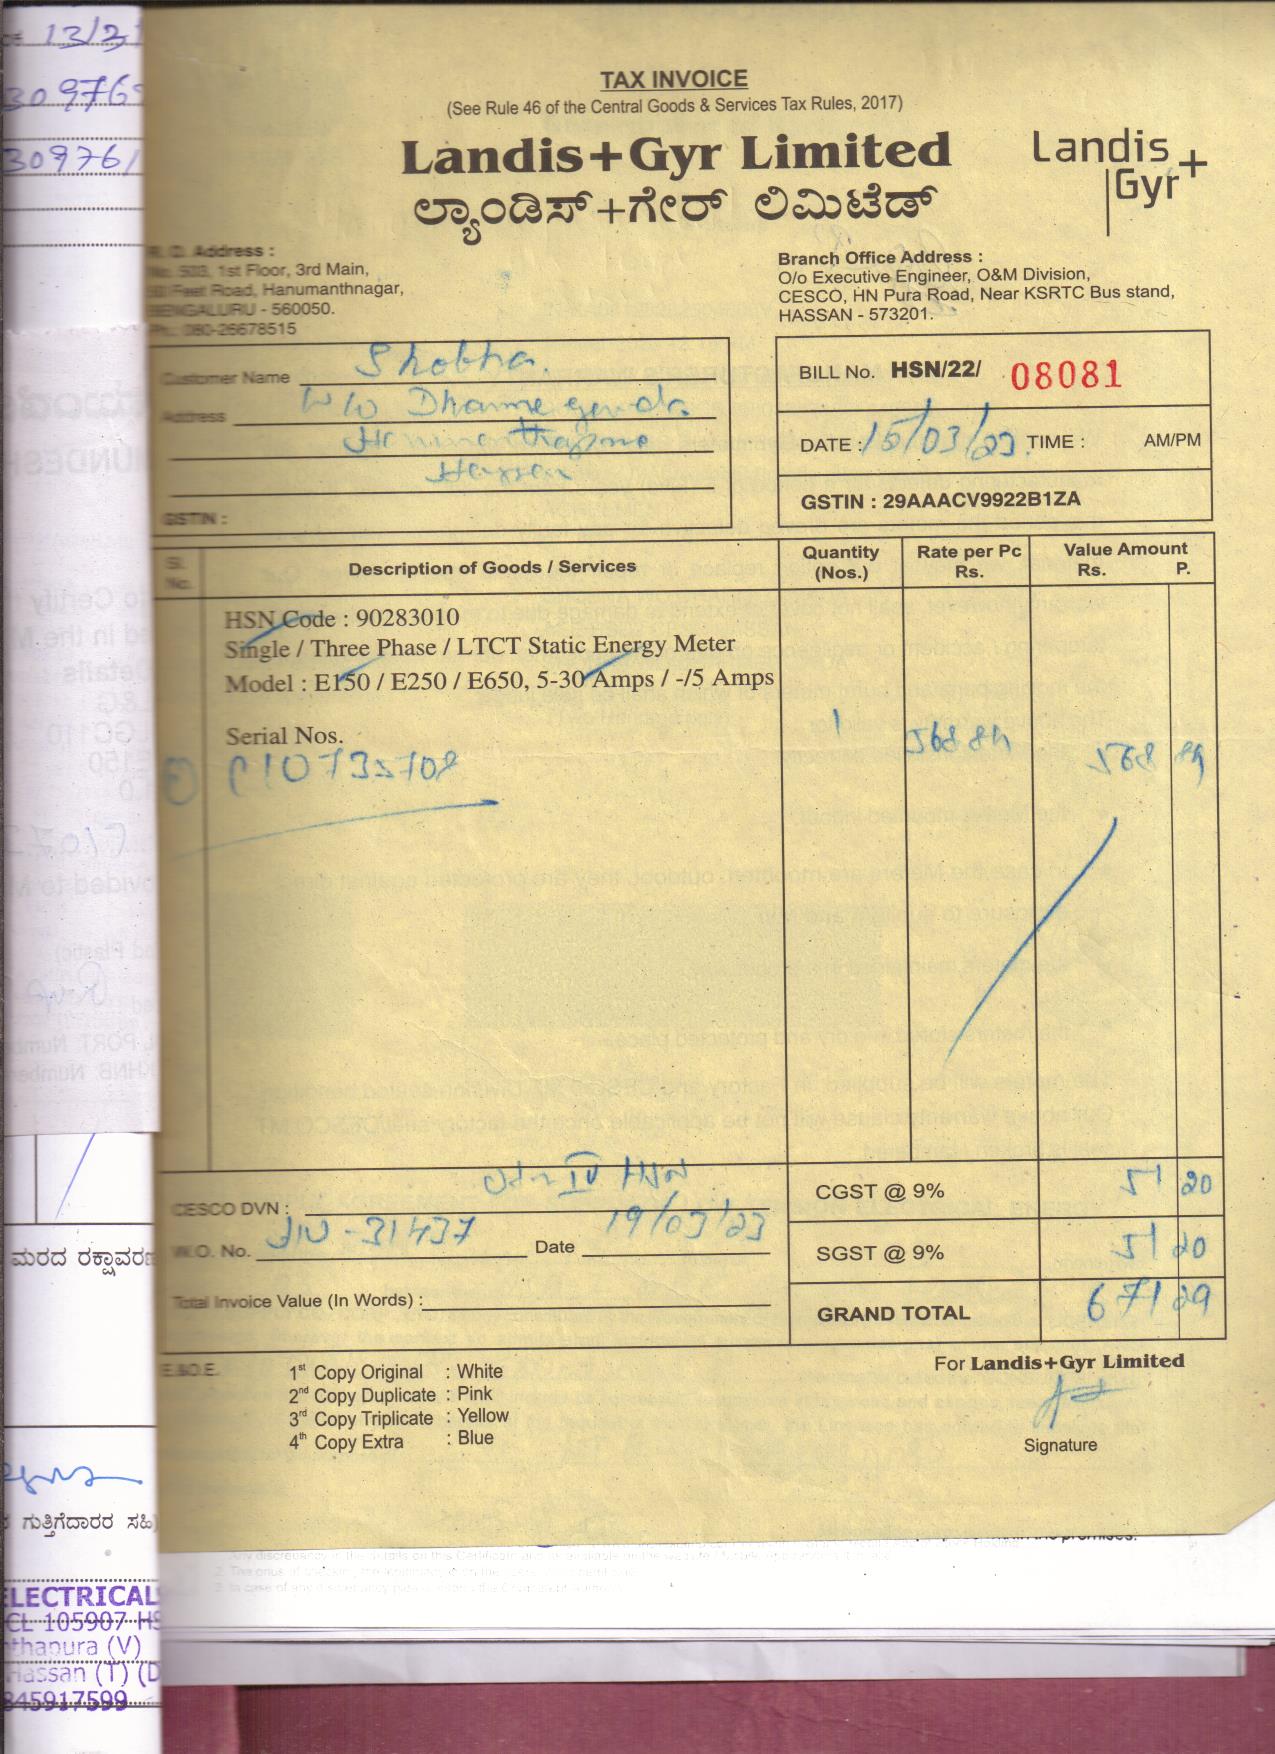 13/2
309769
309761
TAX INVOICE
(See Rule 46 of the Central Goods & Services Tax Rules, 2017)
Landis+Gyr Limited
ಲ್ಯಾಂಡಿಸ್+ಗೇರ್ ಲಿಮಿಟೆಡ್
Landis
Gyr+
R. O. Address :
No. 503, 1st Floor, 3rd Main,
Feet Road, Hanumanthnagar,
BENGALURU - 560050.
Ph.: 080-26678515
Branch Office Address :
O/o Executive Engineer, O&M Division,
CESCO, HN Pura Road, Near KSRTC Bus stand,
HASSAN - 573201.
Customer Name Shobha.
Address W/o Dharmegowda
Hassan
GSTIN :
BILL No. HSN/22/ 08081
DATE : 15/03/23 TIME : AM/PM
GSTIN : 29AAACV9922B1ZA
Sl. No. Description of Goods / Services Quantity (Nos.) Rate per Pc Rs. Value Amount Rs. P.
HSN Code : 90283010
Single / Three Phase / LTCT Static Energy Meter
Model : E150 / E250 / E650, 5-30 Amps / -/5 Amps
Serial Nos. 1 568 89 568 89
CESCO DVN : IV HSN
CGST @ 9% 51 20
W.O. No. 31437 Date 19/03/23
SGST @ 9% 51 20
Total Invoice Value (In Words) :
GRAND TOTAL 671 29
E.&O.E.
1st Copy Original : White
2nd Copy Duplicate : Pink
3rd Copy Triplicate : Yellow
4th Copy Extra : Blue
For Landis+Gyr Limited
Signature
ಮರದ ರಕ್ಷಾವರಣ
ಗುತ್ತಿಗೆದಾರರ ಸಹಿ)
ELECTRICAL
CL 105907 HS
nthapura (V)
Hassan (T) (D
845917599